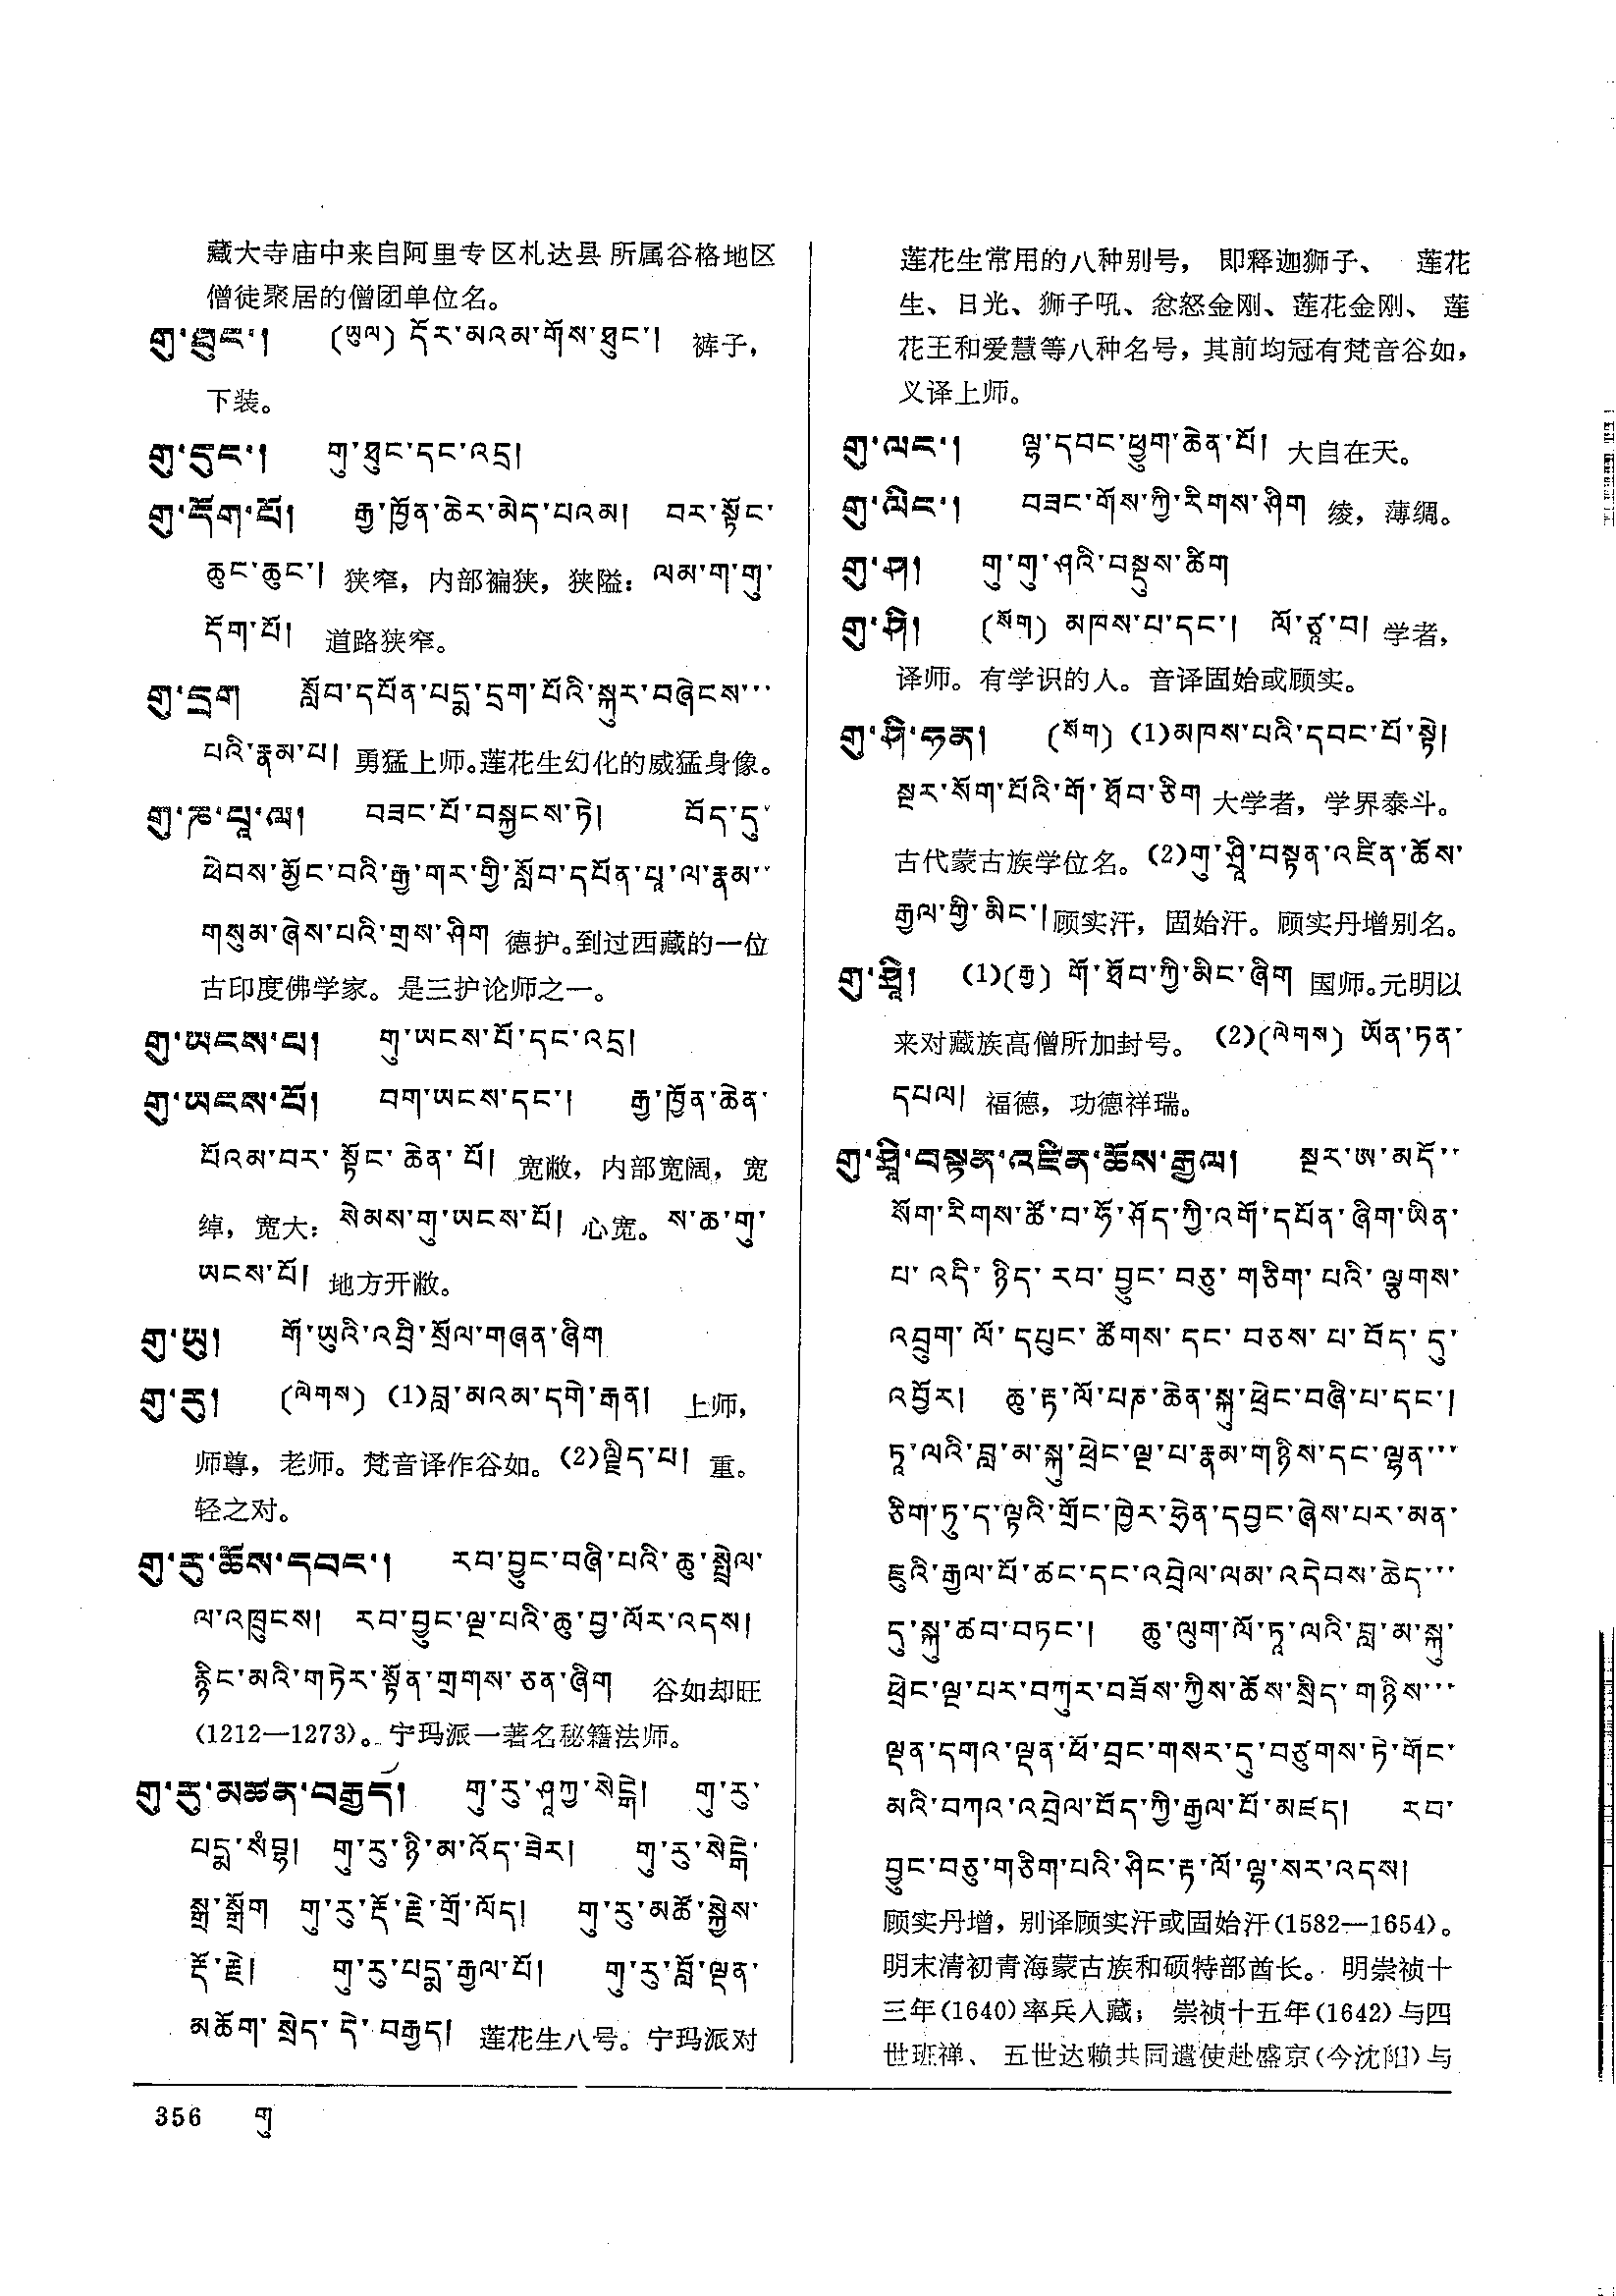 藏大寺庙中来自阿里专区札达县所属谷格地区
僧徒聚居的僧团单位名。
གུ་ཐུང་། (ཡུལ) དོར་མའམ་གོས་ཐུང་། 裤子，
下装。
གུ་དུང་། གུ་ཐུང་དང་འདྲ།
གུ་དོག་པོ། རྒྱ་ཁྱོན་ཆེར་མེད་པའམ། བར་སྟོང་
ཆུང་ཆུང་། 狭窄，内部褊狭，狭隘：ལམ་ག་གུ་
དོག་པོ། 道路狭窄。
གུ་དྲག སློབ་དཔོན་པདྨ་དྲག་པོའི་སྐུར་བཞེངས་
པའི་རྣམ་པ། 勇猛上师。莲花生幻化的威猛身像。
གུ་ཎ་པཱ་ལ། བཟང་པོ་བསྐྱངས་ཏེ། བོད་དུ་
ཕེབས་མྱོང་བའི་རྒྱ་གར་གྱི་སློབ་དཔོན་པཱ་ལ་རྣམ་
གསུམ་ཞེས་པའི་གྲས་ཤིག 德护。到过西藏的一位
古印度佛学家。是三护论师之一。
གུ་ཡངས་པ། གུ་ཡངས་པོ་དང་འདྲ།
གུ་ཡངས་པོ། བག་ཡངས་དང་། རྒྱ་ཁྱོན་ཆེན་
པོའམ་བར་སྟོང་ཆེན་པོ། 宽敞，内部宽阔，宽
绰，宽大：སེམས་གུ་ཡངས་པོ། 心宽。ས་ཆ་གུ་
ཡངས་པོ། 地方开敞。
གུ་ཡུ། གོ་ཡུའི་འབྲི་སྲོལ་གཞན་ཞིག
གུ་རུ། (ལེགས) (1)བླ་མའམ་དགེ་རྒན། 上师，
师尊，老师。梵音译作谷如。(2)ལྗིད་པ། 重。
轻之对。
གུ་རུ་ཆོས་དབང་། རབ་བྱུང་བཞི་པའི་ཆུ་སྤྲེལ་
ལ་འཁྲུངས། རབ་བྱུང་ལྔ་པའི་ཆུ་བྱ་ལོར་འདས།
རྙིང་མའི་གཏེར་སྟོན་གྲགས་ཅན་ཞིག 谷如却旺
(1212—1273)。宁玛派一著名秘籍法师。
གུ་རུ་མཚན་བརྒྱད། གུ་རུ་ཤཱཀྱ་སེངྒེ། གུ་རུ་
པདྨ་སཾབྷ། གུ་རུ་ཉི་མ་འོད་ཟེར། གུ་རུ་སེངྒེ་
སྒྲ་སྒྲོག གུ་རུ་རྡོ་རྗེ་གྲོ་ལོད། གུ་རུ་མཚོ་སྐྱེས་
རྡོ་རྗེ། གུ་རུ་པདྨ་རྒྱལ་པོ། གུ་རུ་བློ་ལྡན་
མཆོག་སྲེད་དེ་བརྒྱད། 莲花生八号。宁玛派对
莲花生常用的八种别号，即释迦狮子、莲花
生、日光、狮子吼、忿怒金刚、莲花金刚、莲
花王和爱慧等八种名号，其前均冠有梵音谷如，
义译上师。
གུ་ལང་། ལྷ་དབང་ཕྱུག་ཆེན་པོ། 大自在天。
གུ་ལིང་། བཟང་གོས་ཀྱི་རིགས་ཤིག 绫，薄绸。
གུ་ཤ། གུ་གུ་ཤའི་བསྡུས་ཚིག
གུ་ཤི། (སོག) མཁས་པ་དང་། ལོ་ཙཱ་བ། 学者，
译师。有学识的人。音译固始或顾实。
གུ་ཤི་ཧན། (སོག) (1)མཁས་པའི་དབང་པོ་སྟེ།
སྔར་སོག་པོའི་གོ་ཐོབ་ཅིག 大学者，学界泰斗。
古代蒙古族学位名。(2)གུ་ཤྲཱི་བསྟན་འཛིན་ཆོས་
རྒྱལ་གྱི་མིང་། 顾实汗，固始汗。顾实丹增别名。
གུ་ཤྲཱི། (1)(རྒྱ) གོ་ཐོབ་ཀྱི་མིང་ཞིག 国师。元明以
来对藏族高僧所加封号。(2)(ལེགས) ཡོན་ཏན་
དཔལ། 福德，功德祥瑞。
གུ་ཤྲཱི་བསྟན་འཛིན་ཆོས་རྒྱལ། སྔར་ཨ་མདོ་
སོག་རིགས་ཚོ་བ་ཧོ་ཤོད་ཀྱི་འགོ་དཔོན་ཞིག་ཡིན་
པ་འདི་ཉིད་རབ་བྱུང་བཅུ་གཅིག་པའི་ལྕགས་
འབྲུག་ལོ་དཔུང་ཚོགས་དང་བཅས་པ་བོད་དུ་
འབྱོར། ཆུ་རྟ་ལོ་པཎ་ཆེན་སྐུ་ཕྲེང་བཞི་པ་དང་།
ཏཱ་ལའི་བླ་མ་སྐུ་ཕྲེང་ལྔ་པ་རྣམ་གཉིས་དང་ལྷན་
ཅིག་ཏུ་ད་ལྟའི་གྲོང་ཁྱེར་ཧྲེན་དབྱང་ཞེས་པར་མན་
ཇུའི་རྒྱལ་པོ་ཚང་དང་འབྲེལ་ལམ་འདེབས་ཆེད་
དུ་སྐུ་ཚབ་བཏང་། ཆུ་ལུག་ལོ་ཏཱ་ལའི་བླ་མ་སྐུ་
ཕྲེང་ལྔ་པར་བཀུར་བཟོས་ཀྱིས་ཆོས་སྲིད་གཉིས་
ལྡན་དགའ་ལྡན་ཕོ་བྲང་གསར་དུ་བཙུགས་ཏེ་གོང་
མའི་བཀའ་འབྲེལ་བོད་ཀྱི་རྒྱལ་པོ་མཛད། རབ་
བྱུང་བཅུ་གཅིག་པའི་ཤིང་རྟ་ལོ་ལྷ་སར་འདས།
顾实丹增，别译顾实汗或固始汗(1582—1654)。
明末清初青海蒙古族和硕特部酋长。明崇祯十
三年(1640)率兵入藏；崇祯十五年(1642)与四
世班禅、五世达赖共同遣使赴盛京(今沈阳)与
356 གུ